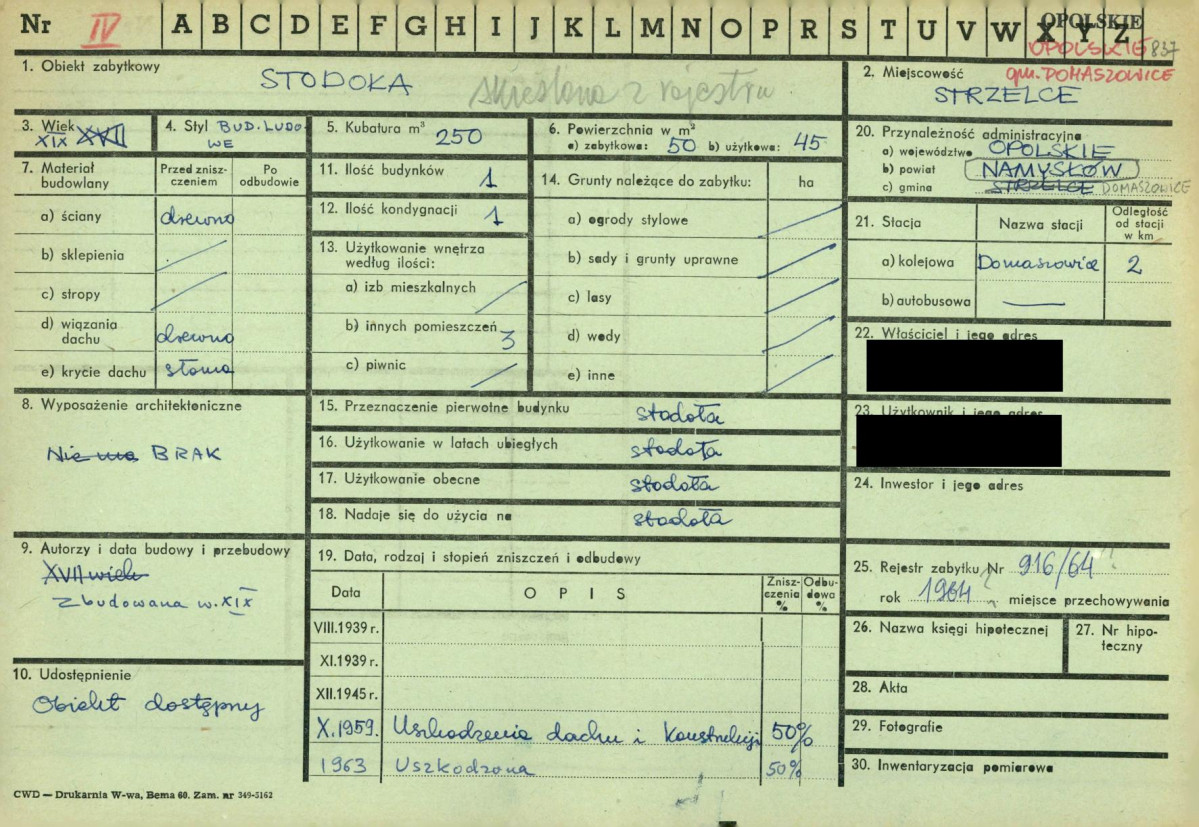 Nr IV A B C D E F G H I J K L M N O P R S T U V W X Y Z
OPOLSKIE
OPOLSKIE 837
gm. DOMASZOWICE
1. Obiekt zabytkowy
STODOŁA skreślona z rejestru
2. Miejscowość
STRZELCE
3. Wiek
XIX XVII
4. Styl BUD. LUDO-
WE
5. Kubatura m³ 250
6. Powierzchnia w m²
a) zabytkowa: 50 b) użytkowa: 45
7. Materiał
budowlany
Przed znisz-
czeniem
Po
odbudowie
a) ściany drewno
b) sklepienia
c) stropy
d) wiązania
dachu drewno
e) krycie dachu słoma
8. Wyposażenie architektoniczne
Nie ma BRAK
9. Autorzy i data budowy i przebudowy
XVII wiek
Zbudowana w. XIX
10. Udostępnienie
Obiekt dostępny
11. Ilość budynków 1
12. Ilość kondygnacji 1
13. Użytkowanie wnętrza
według ilości:
a) izb mieszkalnych
b) innych pomieszczeń 3
c) piwnic
14. Grunty należące do zabytku: ha
a) ogrody stylowe
b) sady i grunty uprawne
c) lasy
d) wody
e) inne
15. Przeznaczenie pierwotne budynku stodoła
16. Użytkowanie w latach ubiegłych stodoła
17. Użytkowanie obecne stodoła
18. Nadaje się do użycia na stodoła
19. Data, rodzaj i stopień zniszczeń i odbudowy
Data OPIS
Znisz-
czenia
%
Odbu-
dowa
%
VIII.1939 r.
XI.1939 r.
XII.1945 r.
X.1959. Uszkodzenia dachu i konstrukcji 50%
1963 Uszkodzona 50%
20. Przynależność administracyjna
a) województwo OPOLSKIE
b) powiat NAMYSŁÓW
c) gmina STRZELCE DOMASZOWICE
21. Stacja Nazwa stacji
Odległość
od stacji
w km
a) kolejowa Domaszowice 2
b) autobusowa
22. Właściciel i jego adres
23. Użytkownik i jego adres
24. Inwestor i jego adres
25. Rejestr zabytku Nr 916/64
rok 1964 ? miejsce przechowywania
26. Nazwa księgi hipotecznej
27. Nr hipo-
teczny
28. Akta
29. Fotografie
30. Inwentaryzacja pomiarowa
CWD — Drukarnia W-wa, Bema 60. Zam. nr 349-5162